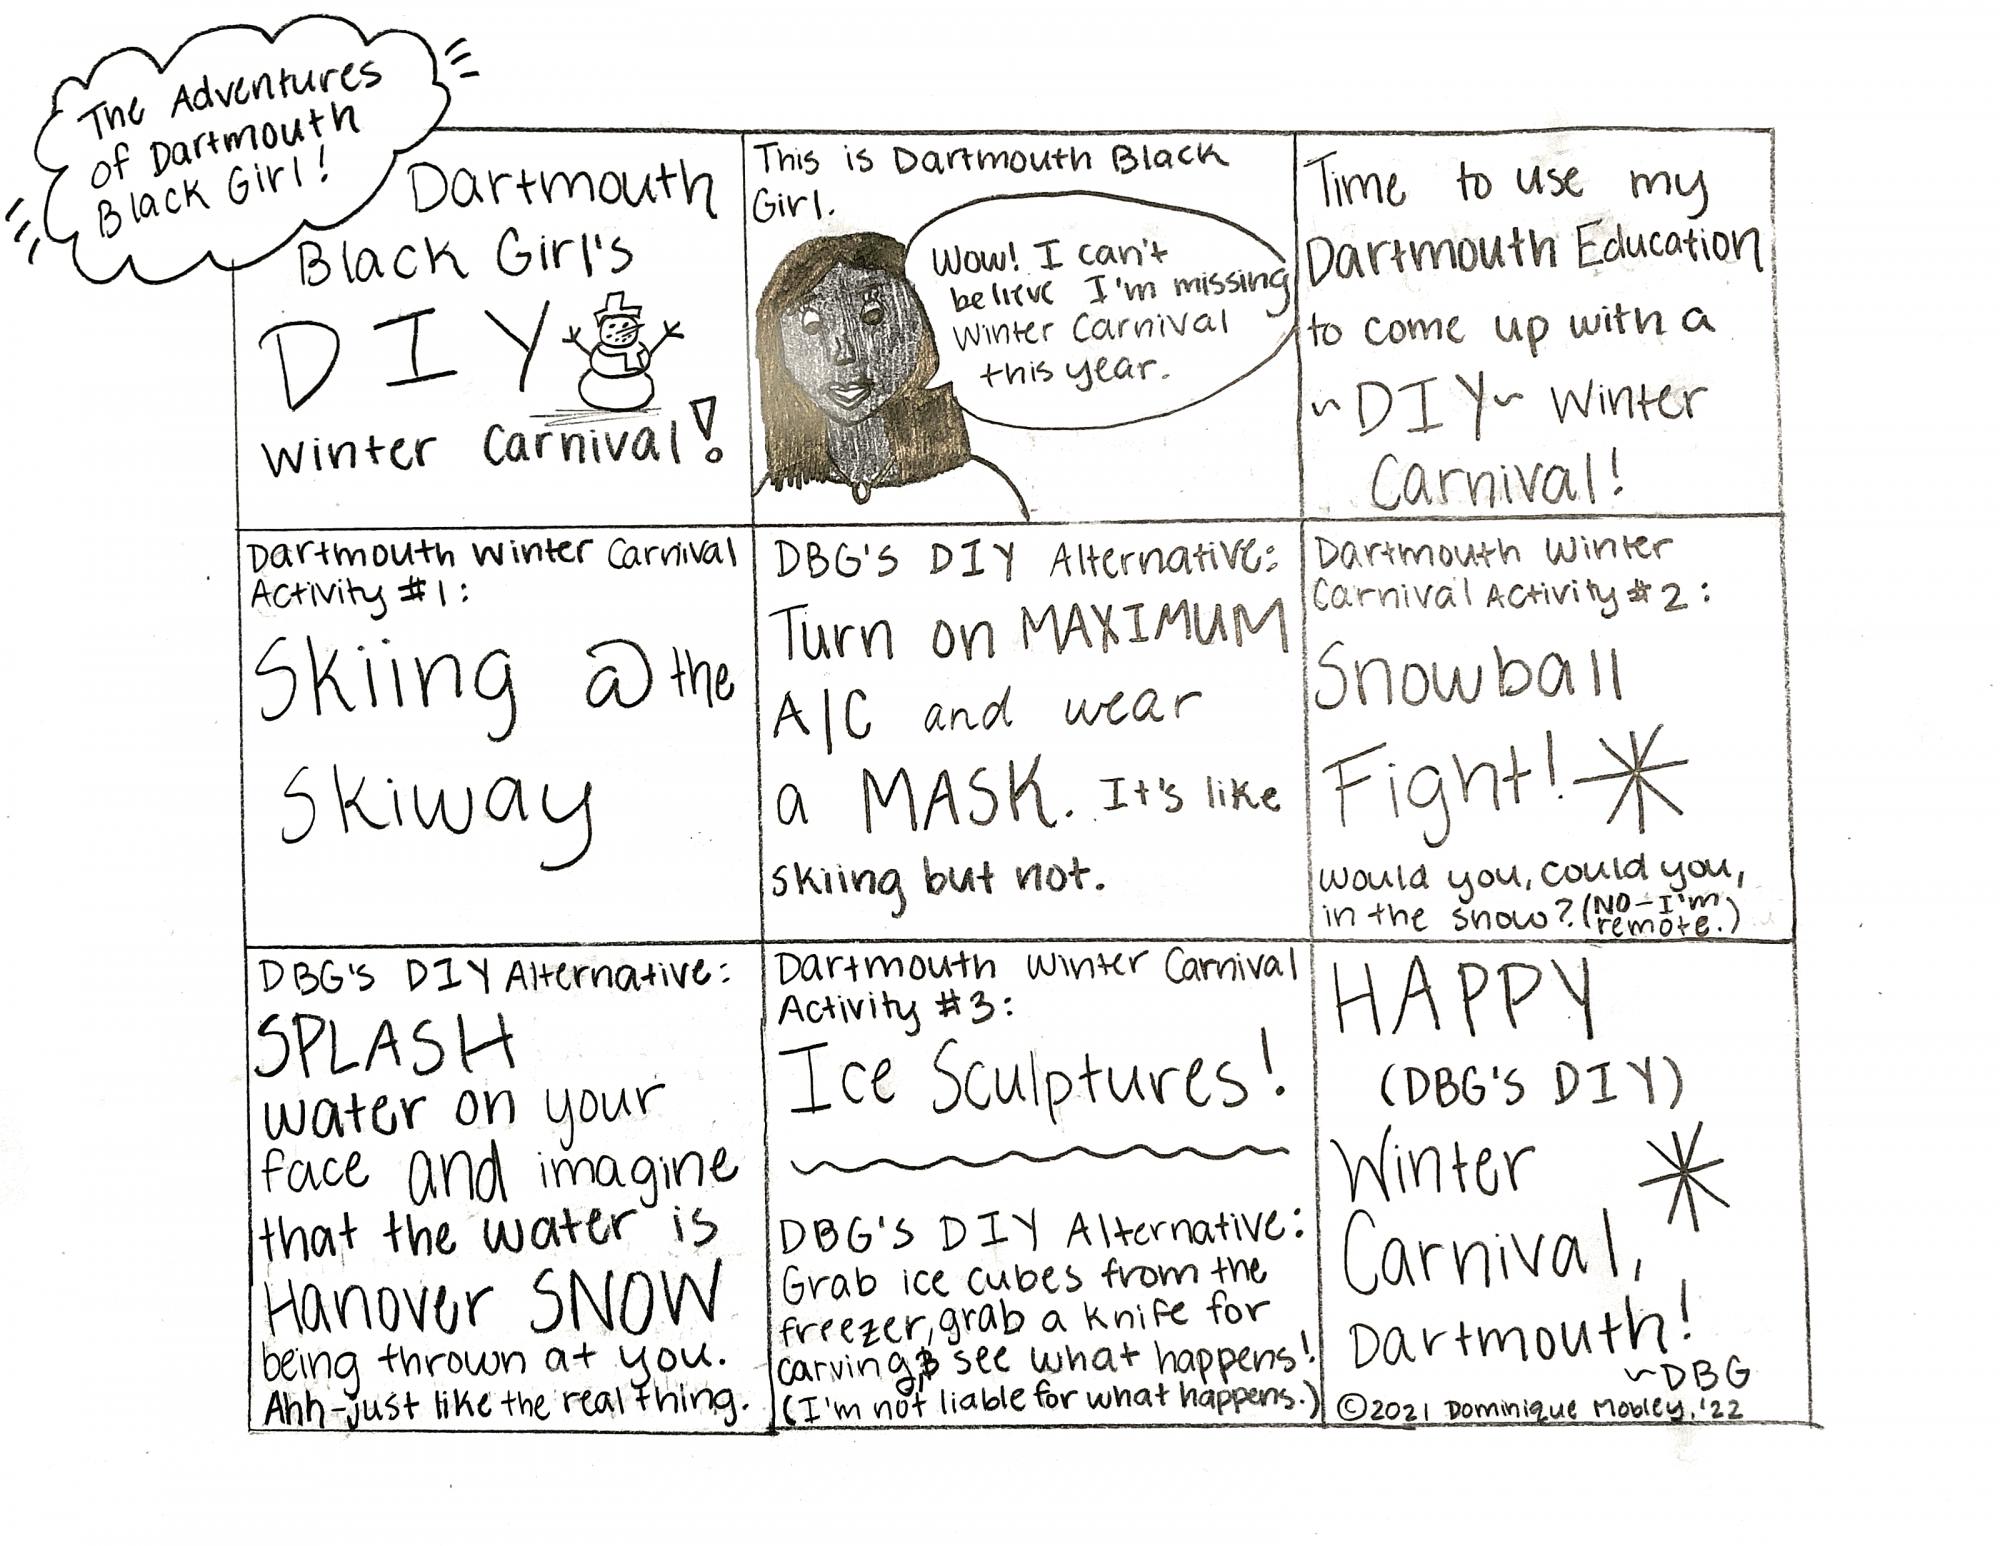 The Adventures
of Dartmouth
Black Girl!
Dartmouth
Black Girl's
DIY
Winter Carnival!
This is Dartmouth Black
Girl.
Wow! I can't
believe I'm missing
Winter Carnival
this year.
Time to use my
Dartmouth Education
to come up with a
~DIY~ Winter
Carnival!
Dartmouth Winter Carnival
Activity #1:
Skiing @ the
Skiway
DBG's DIY Alternative:
Turn on MAXIMUM
A/C and wear
a MASK. It's like
skiing but not.
Dartmouth Winter
Carnival Activity #2:
Snowball
Fight!
would you, could you,
in the snow? (NO-I'm
remote.)
DBG's DIY Alternative:
SPLASH
water on your
face and imagine
that the water is
Hanover SNOW
being thrown at you.
Ahh-just like the real thing.
Dartmouth Winter Carnival
Activity #3:
Ice Sculptures!
DBG's DIY Alternative:
Grab ice cubes from the
freezer, grab a knife for
carving, & see what happens!
(I'm not liable for what happens.)
HAPPY
(DBG'S DIY)
Winter
Carnival,
Dartmouth!
~DBG
©2021 Dominique Mobley, '22